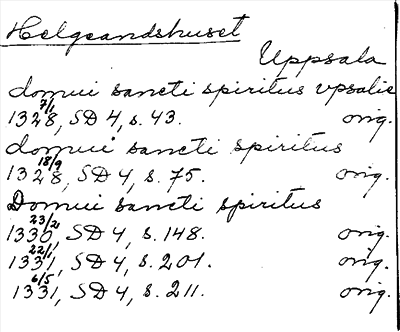 Helgeandshuset
Uppsala
domui sancti spiritus vpsalie
1328 7/1, SD 4, s. 43. orig.
domui sancti spiritus
1328 18/9, SD 4, s. 75. orig.
Domui sancti spiritus
1330 23/2, SD 4, s. 148. orig.
1331 22/1, SD 4, s. 201. orig.
1331 6/5, SD 4, s. 211. orig.